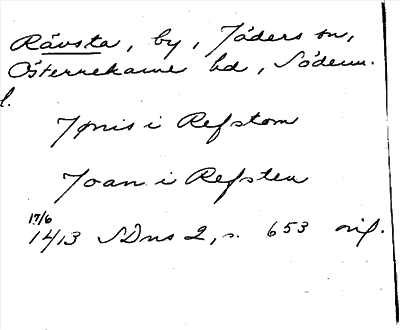 Rävsta, by, Jäders sn,
Österrekarne hd, Söderm.
l.
Jønis i Refstom
Joan i Refsten
17/6
1413 SDns 2, s. 653 orig.